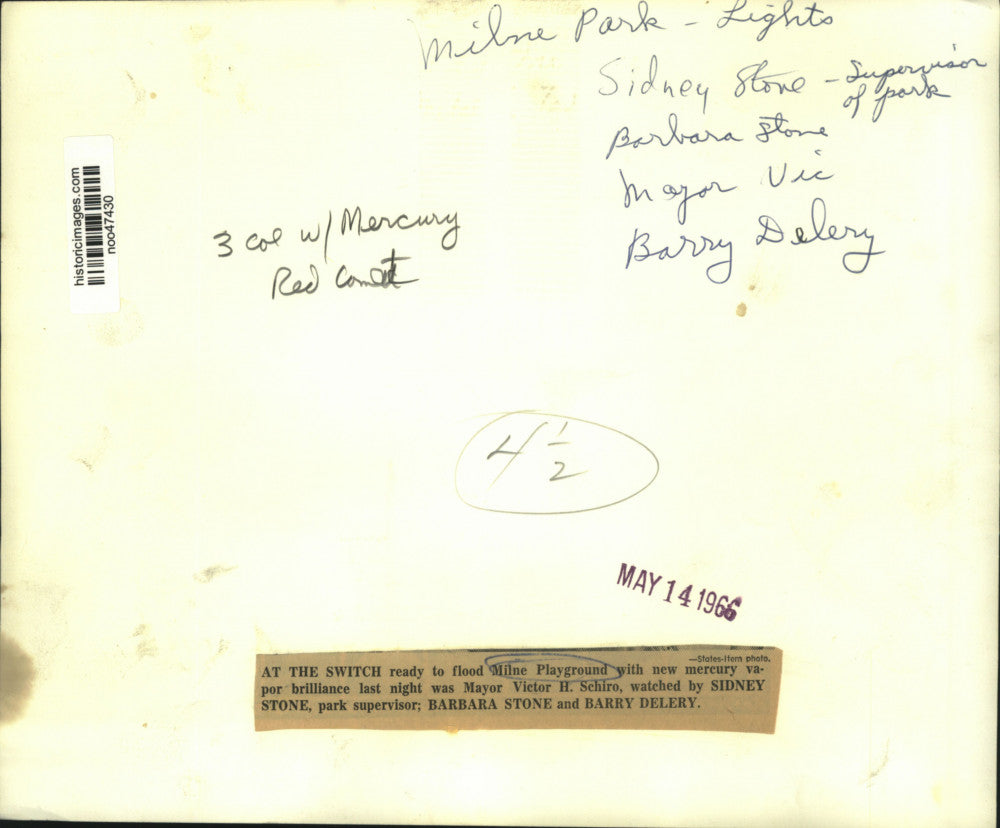 Milne Park - Lights
Sidney Stone - Supervisor
of park
Barbara Stone
Mayor Vic
Barry Delery
historicimages.com
noo47430
3 col w/ Mercury
Red Comet
4 1/2
MAY 14 1966
—States-Item photo.
AT THE SWITCH ready to flood Milne Playground with new mercury va-
por brilliance last night was Mayor Victor H. Schiro, watched by SIDNEY
STONE, park supervisor; BARBARA STONE and BARRY DELERY.